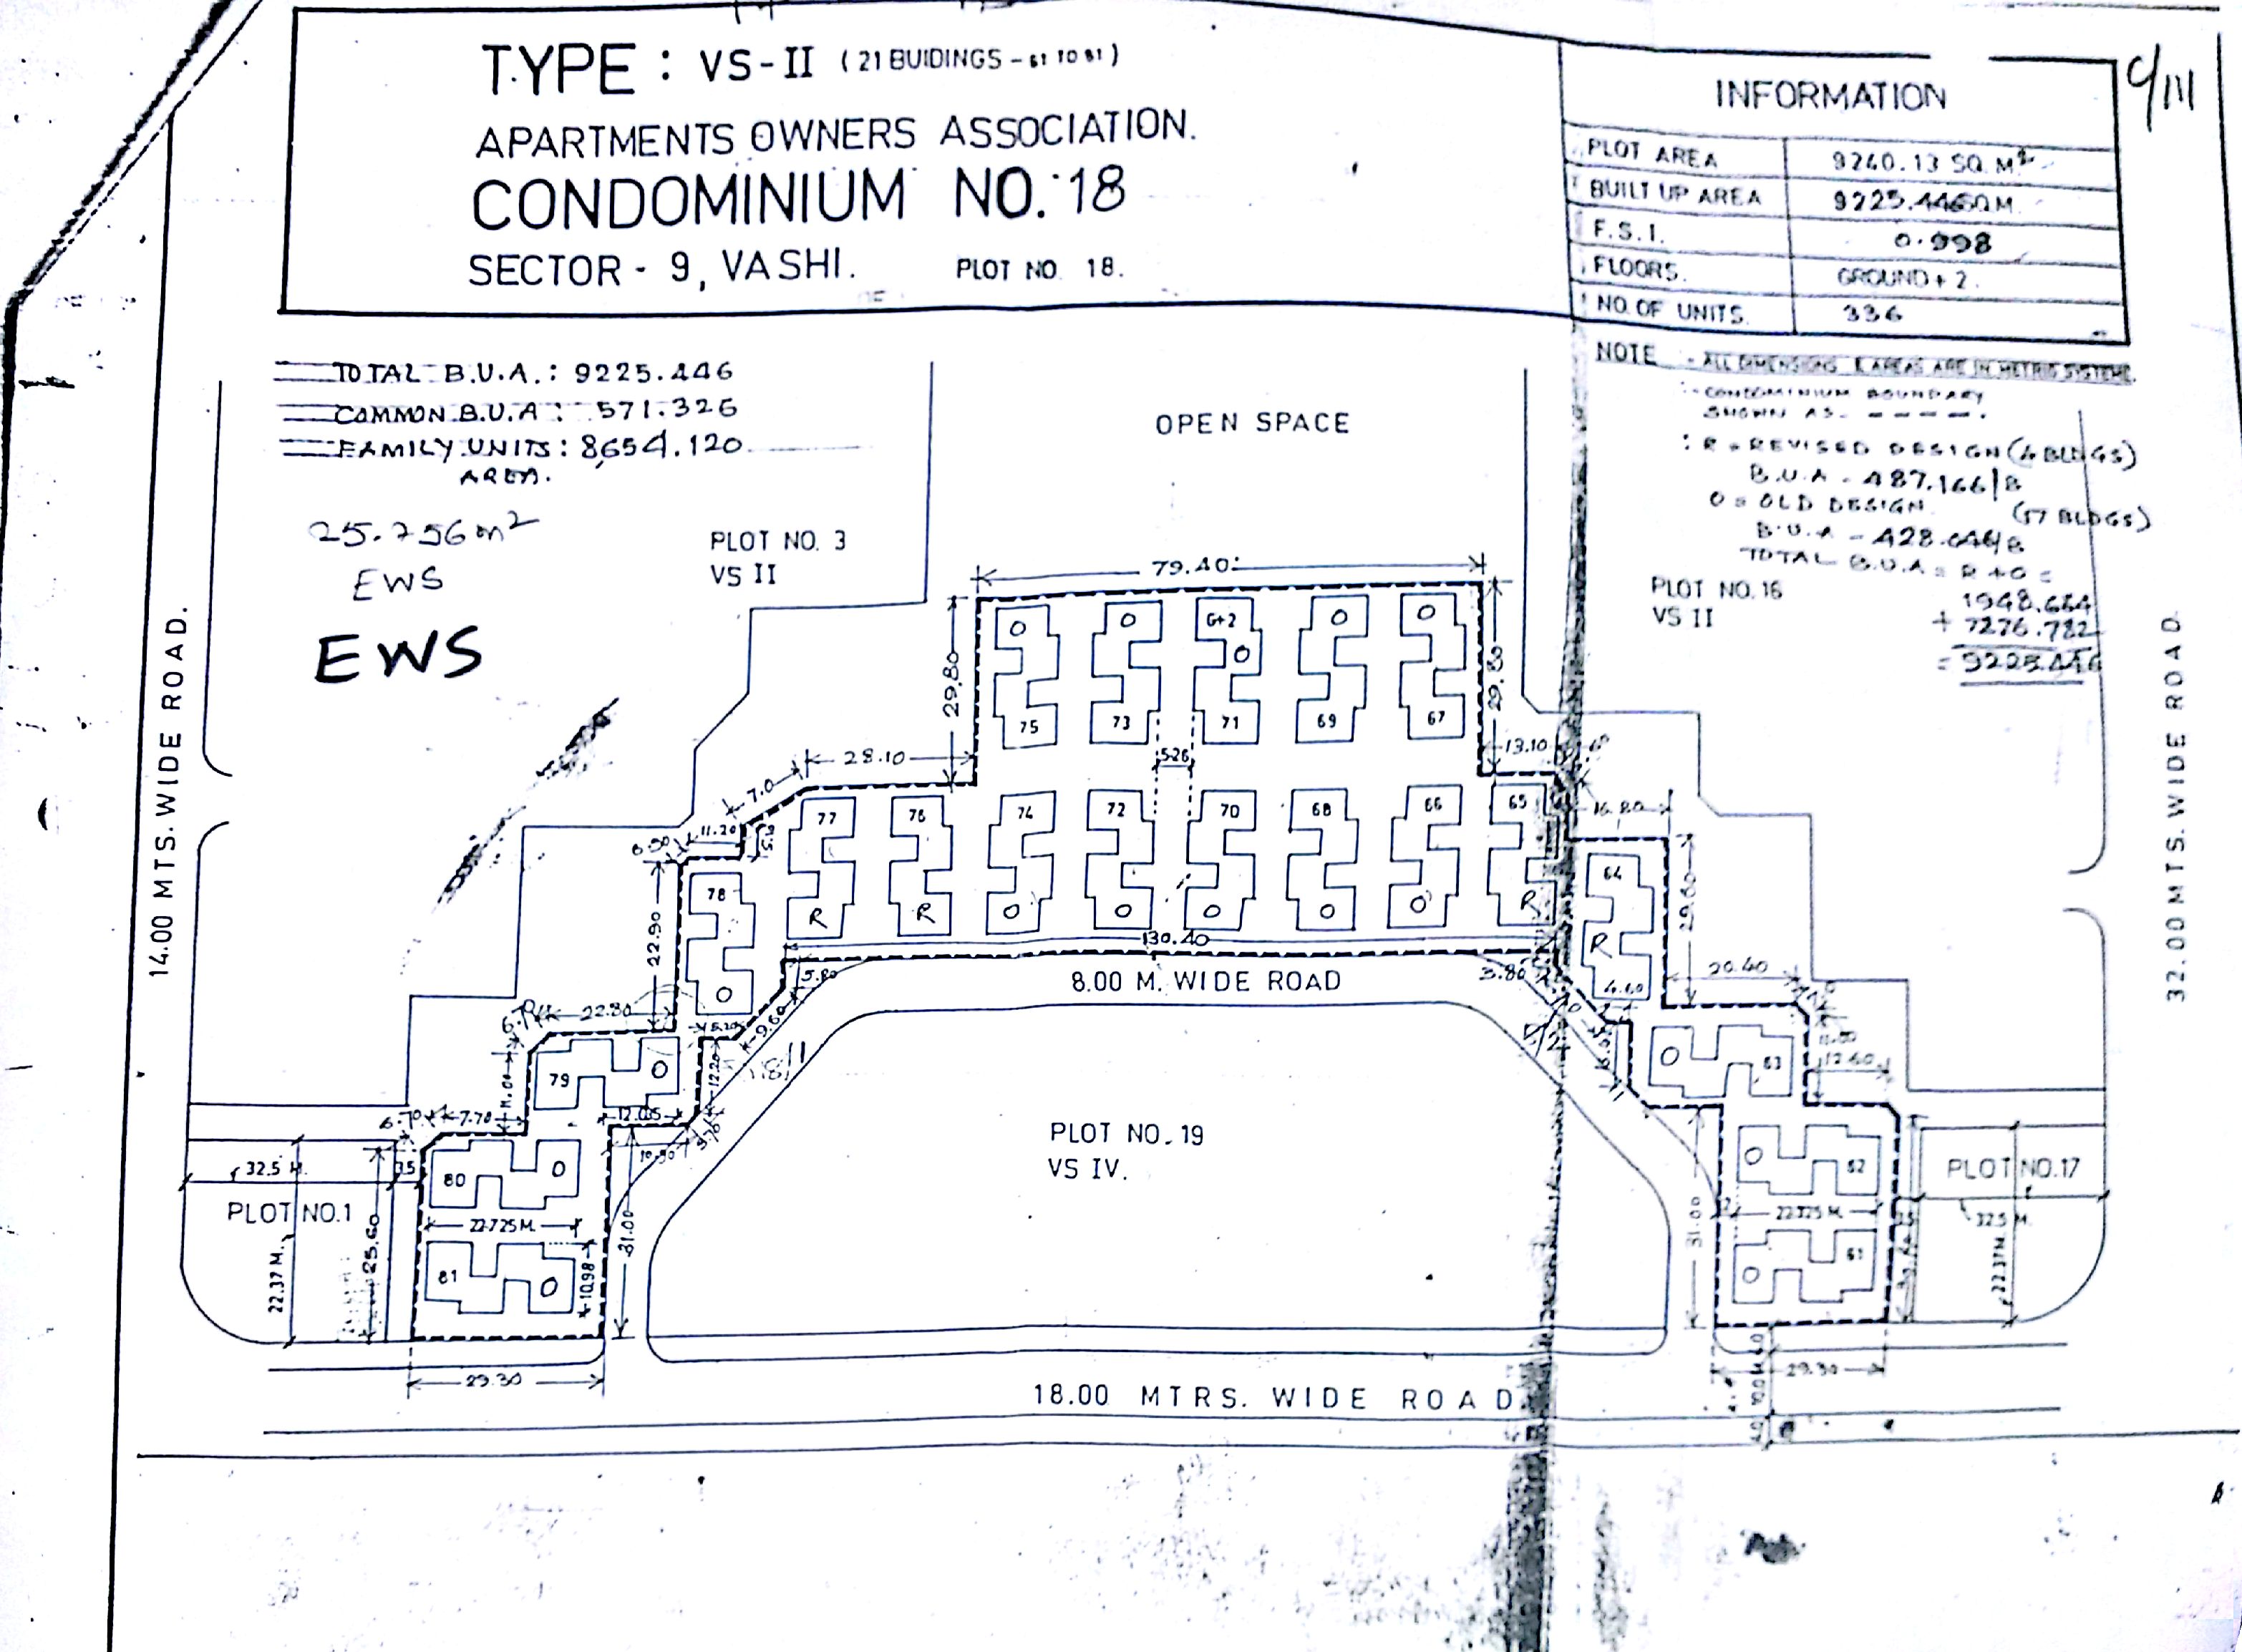 TYPE : VS-II (21 BUIDINGS - 61 TO 81)
APARTMENTS OWNERS ASSOCIATION.
CONDOMINIUM NO. 18
SECTOR - 9, VASHI. PLOT NO. 18.
C/111
INFORMATION
PLOT AREA 9240.13 SQ. M2
BUILT UP AREA 9225.446 SQ M.
F.S.I. 0.998
FLOORS. GROUND + 2.
NO. OF UNITS. 336
NOTE :- ALL DIMENSIONS & AREAS ARE IN METRIC SYSTEME.
:- CONDOMINIUM BOUNDARY
SHOWN AS - - - - - .
: R = REVISED DESIGN (4 BLDGS)
B.U.A - 487.166/B
O = OLD DESIGN (17 BLDGS)
B.U.A - 428.046/B
TOTAL B.U.A = R + O =
1948.664
+ 7276.782
= 9225.446
TOTAL B.U.A. : 9225.446
COMMON B.U.A : 571.326
FAMILY UNITS : 8654.120
AREA.
25.756 m2
EWS
EWS
OPEN SPACE
PLOT NO. 3
VS II
PLOT NO. 16
VS II
14.00 MTS. WIDE ROAD.
32.00 MTS. WIDE ROAD.
79.40
29.80
29.80
O O G+2 O O
O
75 73 71 69 67
28.10
5.26
13.10
7.0
16.80
11.20
77 76 74 72 70 68 66 65
R R O O O O O R
78
O
22.90
64
R
4.60
29.80
130.40
8.00 M. WIDE ROAD
5.80
3.80
20.40
22.80
5.20
9.60
79
O
11.00
12.20
18/1
O
63
12.60
6.70
7.70
12.05
10.50
PLOT NO. 19
VS IV.
32.5 M.
3.5
PLOT NO. 1
22.37 M.
25.60
80
O
22.725 M.
81
O
10.98
31.00
O
62
22.725 M.
O
61
31.00
PLOT NO. 17
32.5 M.
22.37 M.
29.30
29.30
18.00 MTRS. WIDE ROAD